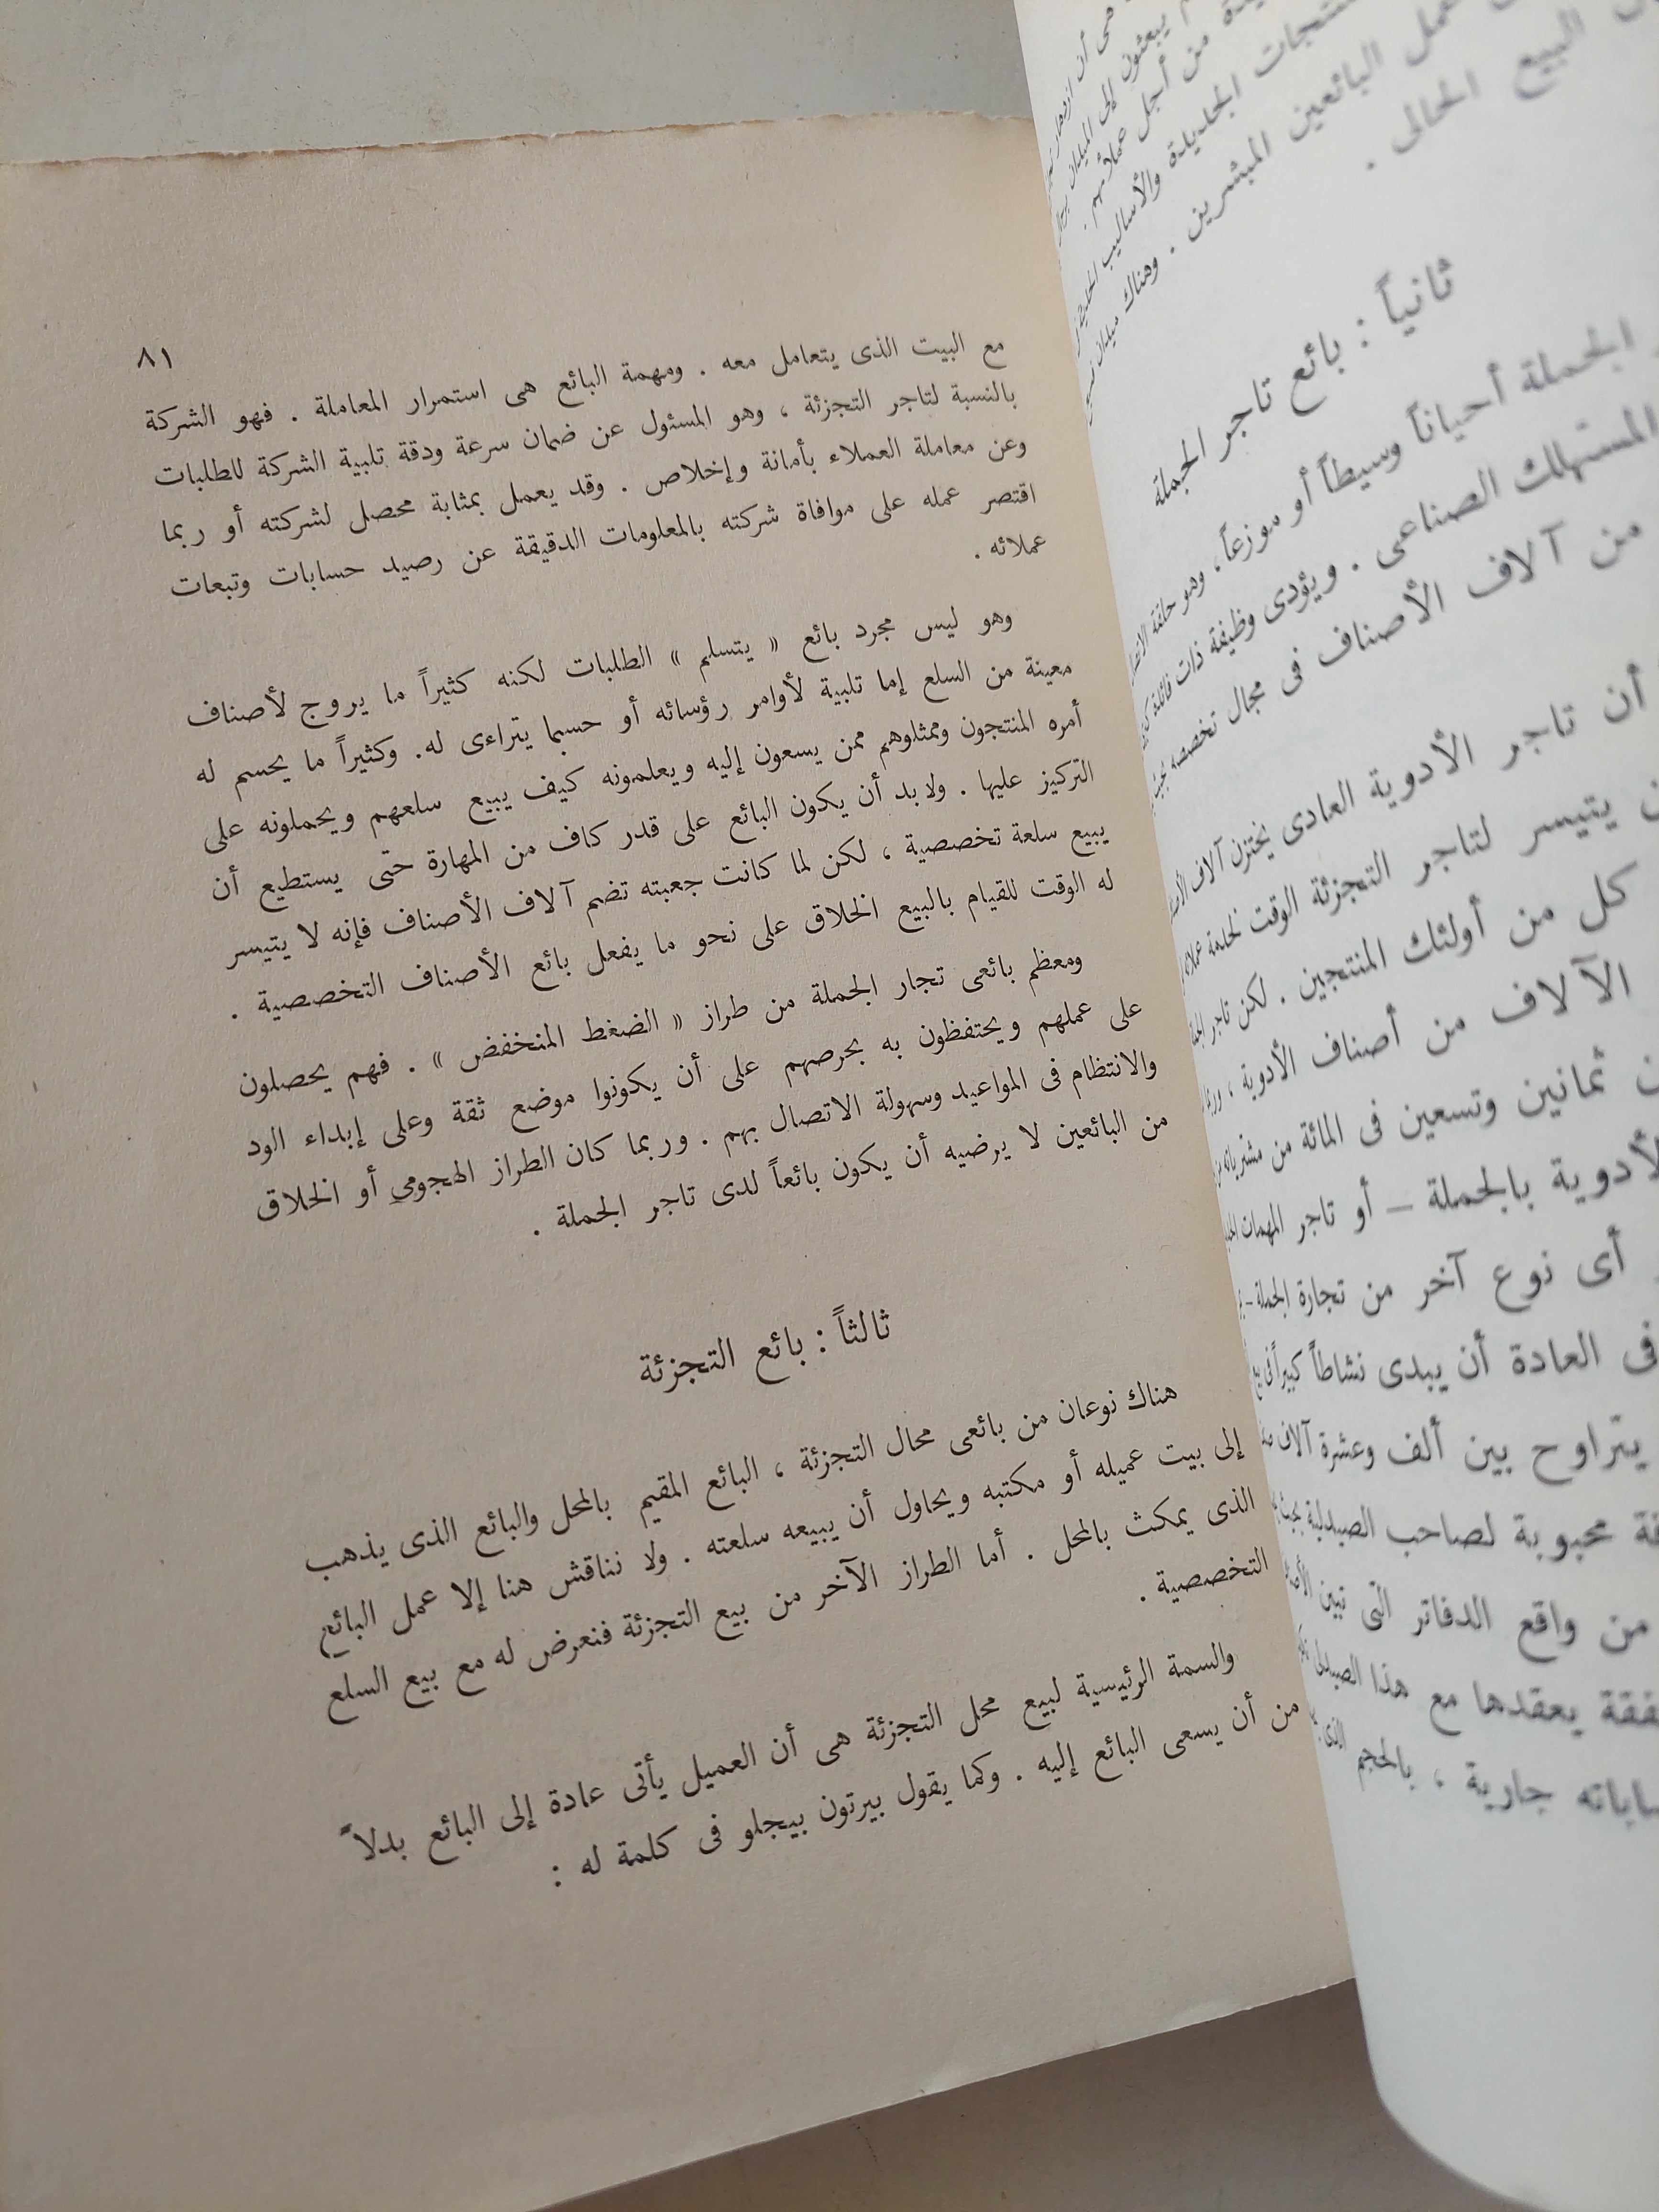 البيع الحالى .
عمل البائعين المبشرين . وهناك
المنتجات الجديدة والأساليب
من أجل عملائهم .
يبعثون إلى الميدان
ثانياً : بائع تاجر الجملة
الجملة أحياناً وسيطاً أو موزعاً ، وهو حلقة
المستهلك الصناعى . ويؤدى وظيفة ذات فائدة
من آلاف الأصناف فى مجال تخصصه
أن تاجر الأدوية العادى يختزن آلاف
يتيسر لتاجر التجزئة الوقت لخدمة
كل من أولئك المنتجين . لكن تاجر
الآلاف من أصناف الأدوية ،
ثمانين وتسعين فى المائة من مشترياته
الأدوية بالجملة – أو تاجر المهمات
أى نوع آخر من تجارة الجملة –
فى العادة أن يبدى نشاطاً كبيراً فى
يتراوح بين ألف وعشرة آلاف
محبوبة لصاحب الصيدلية
من واقع الدفاتر التى تبين
يعقدها مع هذا
جارية ، بالحجم الذى
٨١
مع البيت الذى يتعامل معه . ومهمة البائع هى استمرار المعاملة . فهو الشركة
بالنسبة لتاجر التجزئة ، وهو المسئول عن ضمان سرعة ودقة تلبية الشركة للطلبات
وعن معاملة العملاء بأمانة وإخلاص . وقد يعمل بمثابة محصل لشركته أو ربما
اقتصر عمله على موافاة شركته بالمعلومات الدقيقة عن رصيد حسابات وتبعات
عملائه .
وهو ليس مجرد بائع « يتسلم » الطلبات لكنه كثيراً ما يروج لأصناف
معينة من السلع إما تلبية لأوامر رؤسائه أو حسبما يتراءى له. وكثيراً ما يحسم له
أمره المنتجون وممثلوهم ممن يسعون إليه ويعلمونه كيف يبيع سلعهم ويحملونه على
التركيز عليها . ولابد أن يكون البائع على قدر كاف من المهارة حتى يستطيع أن
يبيع سلعة تخصصية ، لكن لما كانت جعبته تضم آلاف الأصناف فإنه لا يتيسر
له الوقت للقيام بالبيع الخلاق على نحو ما يفعل بائع الأصناف التخصصية .
ومعظم بائعى تجار الجملة من طراز « الضغط المنخفض » . فهم يحصلون
على عملهم ويحتفظون به بحرصهم على أن يكونوا موضع ثقة وعلى إبداء الود
والانتظام فى المواعيد وسهولة الاتصال بهم . وربما كان الطراز الهجومي أو الخلاق
من البائعين لا يرضيه أن يكون بائعاً لدى تاجر الجملة .
ثالثاً : بائع التجزئة
هناك نوعان من بائعى محال التجزئة ، البائع المقيم بالمحل والبائع الذى يذهب
إلى بيت عميله أو مكتبه ويحاول أن يبيعه سلعته . ولا نناقش هنا إلا عمل البائع
الذى يمكث بالمحل . أما الطراز الآخر من بيع التجزئة فنعرض له مع بيع السلع
التخصصية .
والسمة الرئيسية لبيع محل التجزئة هى أن العميل يأتى عادة إلى البائع بدلاً
من أن يسعى البائع إليه . وكما يقول بيرتون بيجلو فى كلمة له :